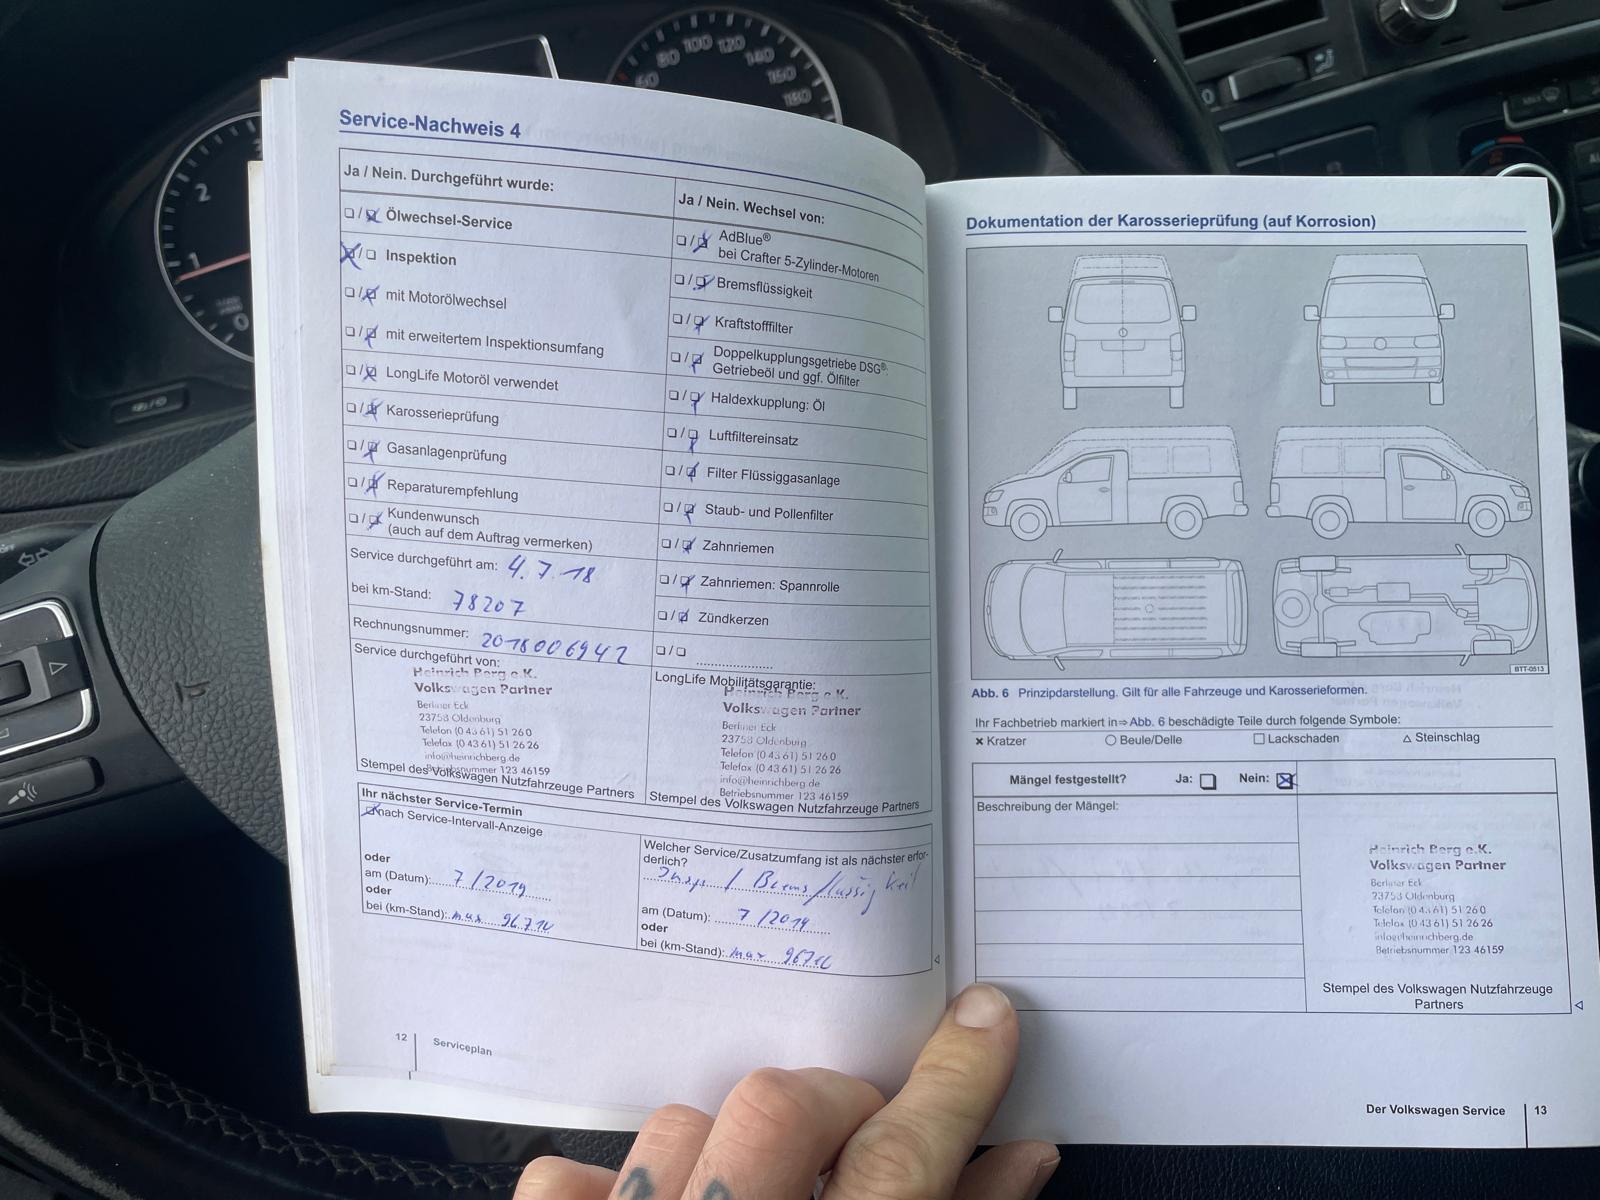 Service-Nachweis 4
Ja / Nein. Durchgeführt wurde:
Ölwechsel-Service
Inspektion
mit Motorölwechsel
mit erweitertem Inspektionsumfang
LongLife Motoröl verwendet
Karosserieprüfung
Gasanlagenprüfung
Reparaturempfehlung
Kundenwunsch
(auch auf dem Auftrag vermerken)
Service durchgeführt am: 4.7.18
bei km-Stand: 78207
Rechnungsnummer: 2018006942
Service durchgeführt von:
Heinrich Berg e.K.
Volkswagen Partner
Berliner Eck
23758 Oldenburg
Telefon (0 43 61) 51 26 0
Telefax (0 43 61) 51 26 26
info@heinrichberg.de
Betriebsnummer 123 46159
Stempel des Volkswagen Nutzfahrzeuge Partners
Ja / Nein. Wechsel von:
AdBlue®
bei Crafter 5-Zylinder-Motoren
Bremsflüssigkeit
Kraftstofffilter
Doppelkupplungsgetriebe DSG®:
Getriebeöl und ggf. Ölfilter
Haldexkupplung: Öl
Luftfiltereinsatz
Filter Flüssiggasanlage
Staub- und Pollenfilter
Zahnriemen
Zahnriemen: Spannrolle
Zündkerzen
LongLife Mobilitätsgarantie:
Heinrich Berg e.K.
Volkswagen Partner
Berliner Eck
23758 Oldenburg
Telefon (0 43 61) 51 26 0
Telefax (0 43 61) 51 26 26
info@heinrichberg.de
Betriebsnummer 123 46159
Stempel des Volkswagen Nutzfahrzeuge Partners
Ihr nächster Service-Termin
nach Service-Intervall-Anzeige
oder
am (Datum): 7/2019
oder
bei (km-Stand): max
Welcher Service/Zusatzumfang ist als nächster erfor-
derlich?
Insp / Bremsflüssigkeit
am (Datum): 7/2019
oder
bei (km-Stand): max
12
Serviceplan
Dokumentation der Karosserieprüfung (auf Korrosion)
BTT-0513
Abb. 6 Prinzipdarstellung. Gilt für alle Fahrzeuge und Karosserieformen.
Ihr Fachbetrieb markiert in ⇒ Abb. 6 beschädigte Teile durch folgende Symbole:
× Kratzer
○ Beule/Delle
□ Lackschaden
△ Steinschlag
Mängel festgestellt? Ja: Nein:
Beschreibung der Mängel:
Heinrich Berg e.K.
Volkswagen Partner
Berliner Eck
23758 Oldenburg
Telefon (0 43 61) 51 26 0
Telefax (0 43 61) 51 26 26
info@heinrichberg.de
Betriebsnummer 123 46159
Stempel des Volkswagen Nutzfahrzeuge
Partners
Der Volkswagen Service
13
60
80
100
120
140
160
180
2
1
0